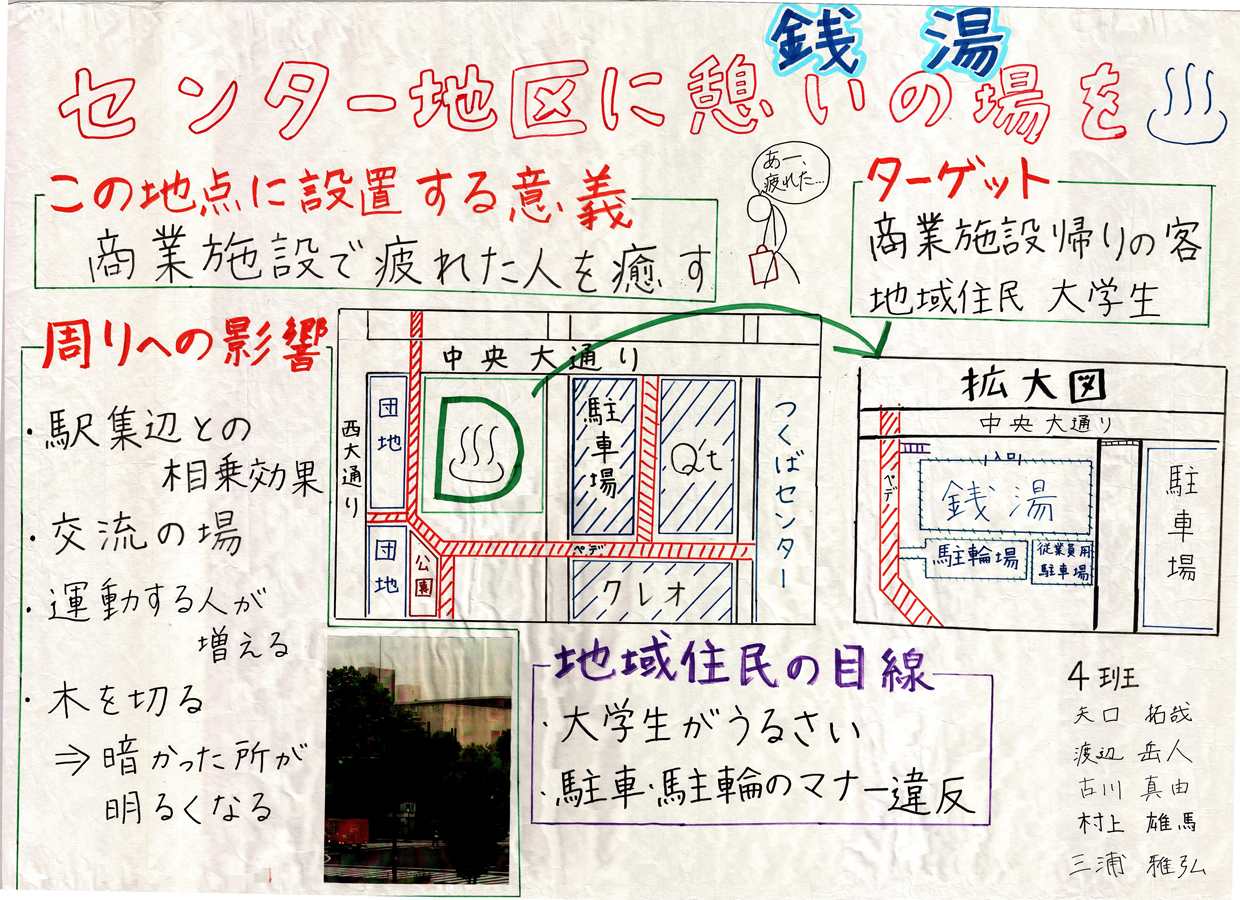 銭 湯
センター地区に憩いの場を
この地点に設置する意義
商業施設で疲れた人を癒す
あー、
疲れた…
ターゲット
商業施設帰りの客
地域住民 大学生
周りへの影響
・駅集辺との
相乗効果
・交流の場
・運動する人が
増える
・木を切る
⇒暗かった所が
明るくなる
中央大通り
西大通り
団地
団地
公園
D
駐車場
Q't
つくばセンター
ペデ
クレオ
拡大図
中央大通り
ペデ
入口
銭湯
駐輪場
従業員用
駐車場
駐車場
地域住民の目線
・大学生がうるさい
・駐車・駐輪のマナー違反
4班
矢口 拓哉
渡辺 岳人
古川 真由
村上 雄馬
三浦 雅弘